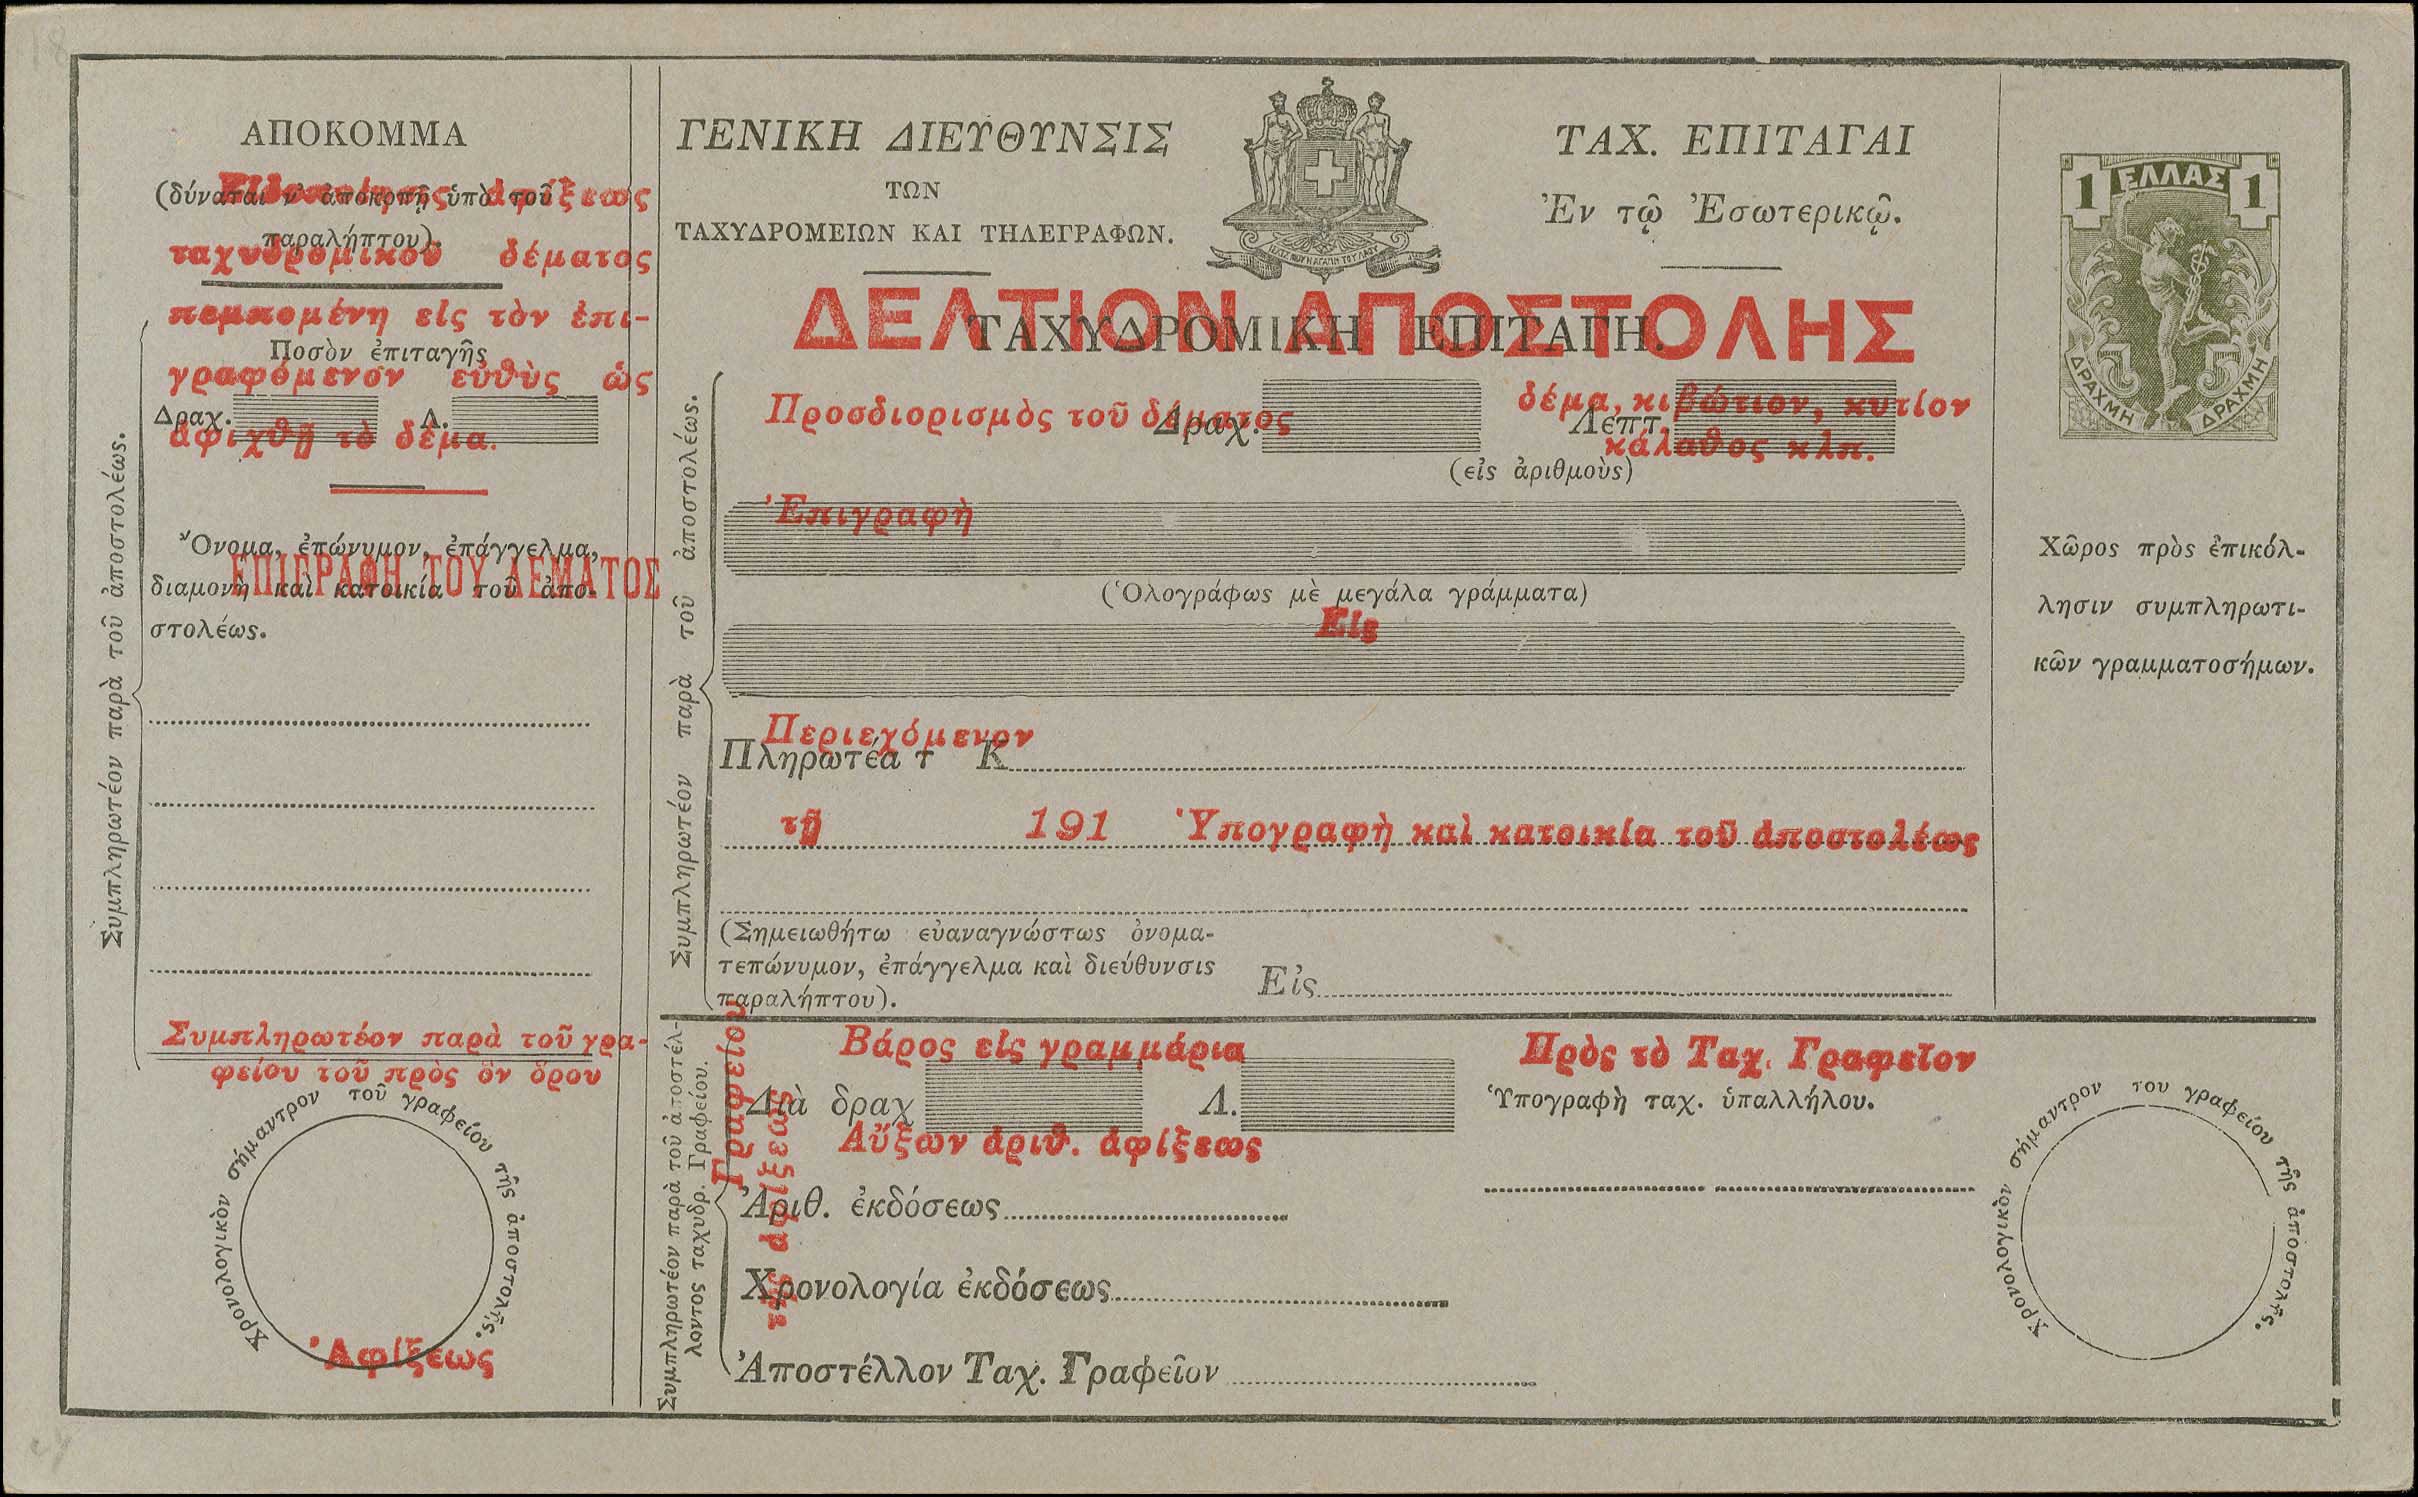 ΑΠΟΚΟΜΜΑ
(δύναται ν' ἀποκοπῇ ὑπὸ τοῦ
παραλήπτου).
Εἰδοποίησις ἀφίξεως
ταχυδρομικοῦ δέματος
πεμπομένη εἰς τὸν ἐπι-
γραφόμενον εὐθὺς ὡς
ἀφιχθῇ τὸ δέμα.
Ποσὸν ἐπιταγῆς
Δραχ. Λ.
Ὄνομα, ἐπώνυμον, ἐπάγγελμα,
διαμονὴ καὶ κατοικία τοῦ ἀπο-
στολέως.
ΕΠΙΓΡΑΦΗ ΤΟΥ ΔΕΜΑΤΟΣ
Συμπληρωτέον παρὰ τοῦ ἀποστολέως.
Συμπληρωτέον παρὰ τοῦ γρα-
φείου τοῦ πρὸς ὃν ὅρου
Χρονολογικὸν σήμαντρον τοῦ γραφείου τῆς ἀποστολῆς.
Ἀφίξεως
ΓΕΝΙΚΗ ΔΙΕΥΘΥΝΣΙΣ
ΤΩΝ
ΤΑΧΥΔΡΟΜΕΙΩΝ ΚΑΙ ΤΗΛΕΓΡΑΦΩΝ.
ΤΑΧ. ΕΠΙΤΑΓΑΙ
Ἐν τῷ Ἐσωτερικῷ.
ΔΕΛΤΙΟΝ ΑΠΟΣΤΟΛΗΣ
ΤΑΧΥΔΡΟΜΙΚΗ ΕΠΙΤΑΓΗ.
Προσδιορισμὸς τοῦ δέματος
δέμα, κιβώτιον, κυτίον
κάλαθος κλπ.
Δραχ. Λεπτ.
(εἰς ἀριθμοὺς)
Ἐπιγραφὴ
(Ὁλογράφως μὲ μεγάλα γράμματα)
Εἰς
Περιεχόμενον
Πληρωτέα τ Κ
τῇ 191 Ὑπογραφὴ καὶ κατοικία τοῦ ἀποστολέως
(Σημειωθήτω εὐαναγνώστως ὀνομα-
τεπώνυμον, ἐπάγγελμα καὶ διεύθυνσις
παραλήπτου).
Εἰς
Συμπληρωτέον παρὰ τοῦ ἀποστολέως.
Συμπληρωτέον παρὰ τοῦ ἀποστέλ-
λοντος ταχυδρ. Γραφείου.
Γραφείου
ἀφίξεως
Βάρος εἰς γραμμάρια
Διὰ δραχ Λ.
Αὔξων ἀριθ. ἀφίξεως
Ἀριθ. ἐκδόσεως
Χρονολογία ἐκδόσεως
Ἀποστέλλον Ταχ. Γραφεῖον
Πρὸς τὸ Ταχ. Γραφεῖον
Ὑπογραφὴ ταχ. ὑπαλλήλου.
1 ΕΛΛΑΣ 1
ΔΡΑΧΜΗ ΔΡΑΧΜΗ
Χῶρος πρὸς ἐπικόλ-
λησιν συμπληρωτι-
κῶν γραμματοσήμων.
Χρονολογικὸν σήμαντρον του γραφείου τῆς ἀποστολῆς.